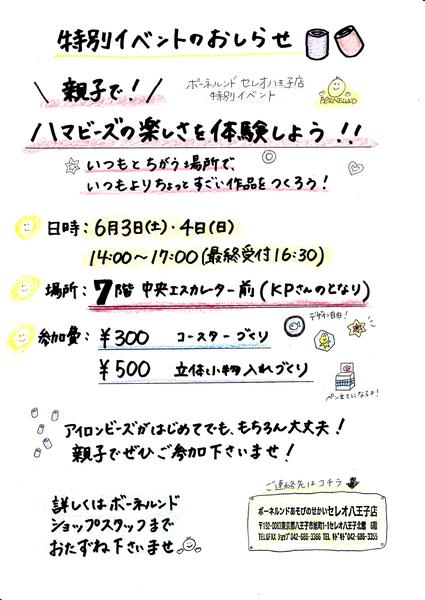 特別イベントのおしらせ
親子で！
ボーネルンド セレオ八王子店
特別イベント
BØRNELUND
ハマビーズの楽しさを体験しよう！！
いつもとちがう場所で、
いつもよりちょっとすごい作品をつくろう！
日時：6月3日(土)・4日(日)
14:00〜17:00(最終受付16:30)
場所：7階 中央エスカレーター前(KPさんのとなり)
デザイン自由！
参加費：¥300 コースターづくり
¥500 立体小物入れづくり
ペン立てにもなるよ！
アイロンビーズがはじめてでも、もちろん大丈夫！
親子でぜひご参加下さいませ！
ご連絡先はコチラ
詳しくはボーネルンド
ショップスタッフまで
おたずね下さいませ
ボーネルンドあそびのせかいセレオ八王子店
〒192-0083東京都八王子市旭町1-1セレオ八王子北館 6階
TEL&FAX ショップ 042-686-3366 TEL キドキド 042-686-3355